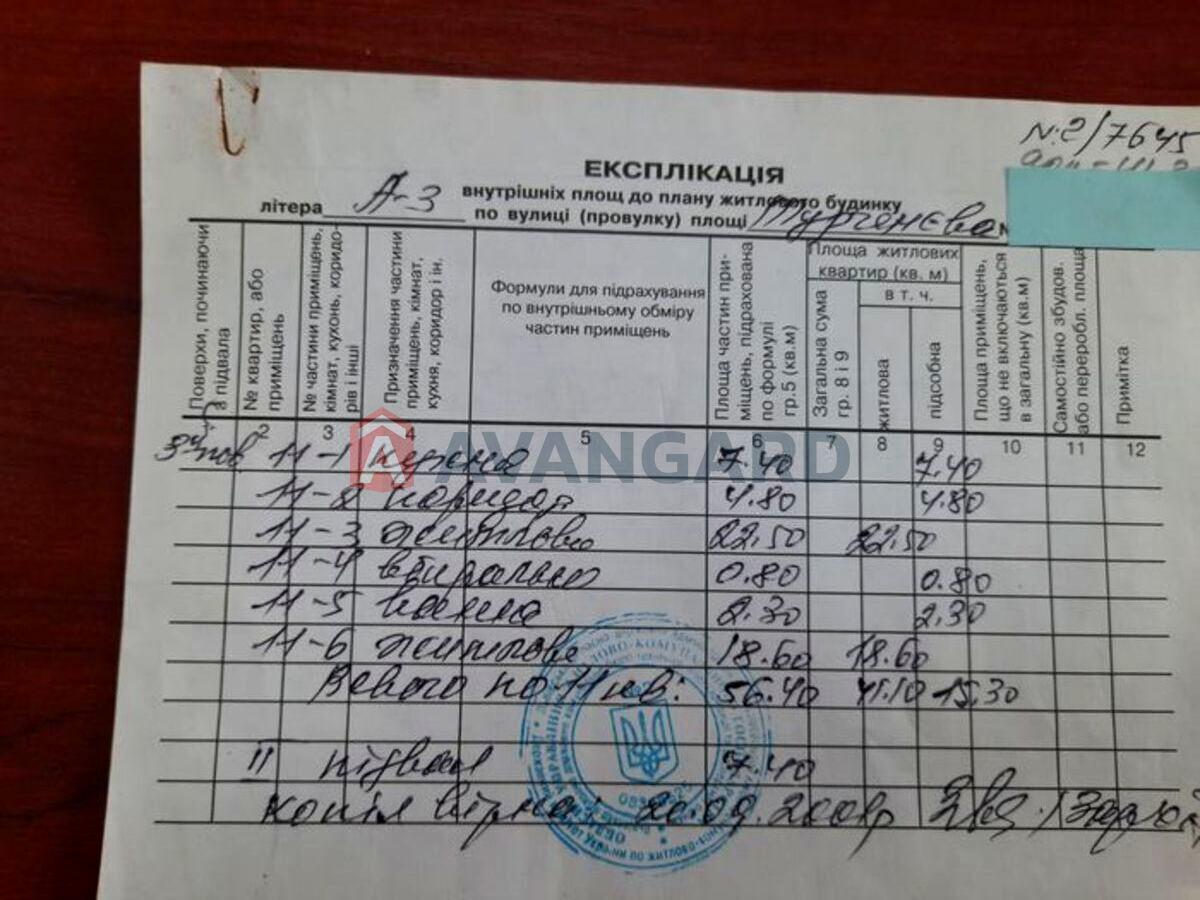 N: 2/7645
ЕКСПЛІКАЦІЯ
внутрішніх площ до плану житлового будинку
літера А-3 по вулиці (провулку) площі Тургенєва №
Поверхи, починаючи з підвала
№ квартир, або приміщень
№ частини приміщень, кімнат, кухонь, коридорів і інші
Призначення частини приміщень, кімнат, кухня, коридор і ін.
Формули для підрахування по внутрішньому обміру частин приміщень
Площа частин приміщень, підрахована по формулі гр.5 (кв.м)
Площа житлових квартир (кв. м)
Загальна сума гр. 8 і 9
в т. ч.
житлова
підсобна
Площа приміщень, що не включаються в загальну (кв.м)
Самостійно збудов. або переробл. площа
Примітка
2 3 4 5 6 7 8 9 10 11 12
3й пов. 11-1 кухня 7.40 7.40
11-2 коридор 4.80 4.80
11-3 житлова 22.50 22.50
11-4 вбиральня 0.80 0.80
11-5 ванна 2.30 2.30
11-6 житлова 18.60 18.60
Всього по 11 кв: 56.40 41.10 15.30
II підвал 7.40
копія вірна: 20.09.2001р
AVANGARD